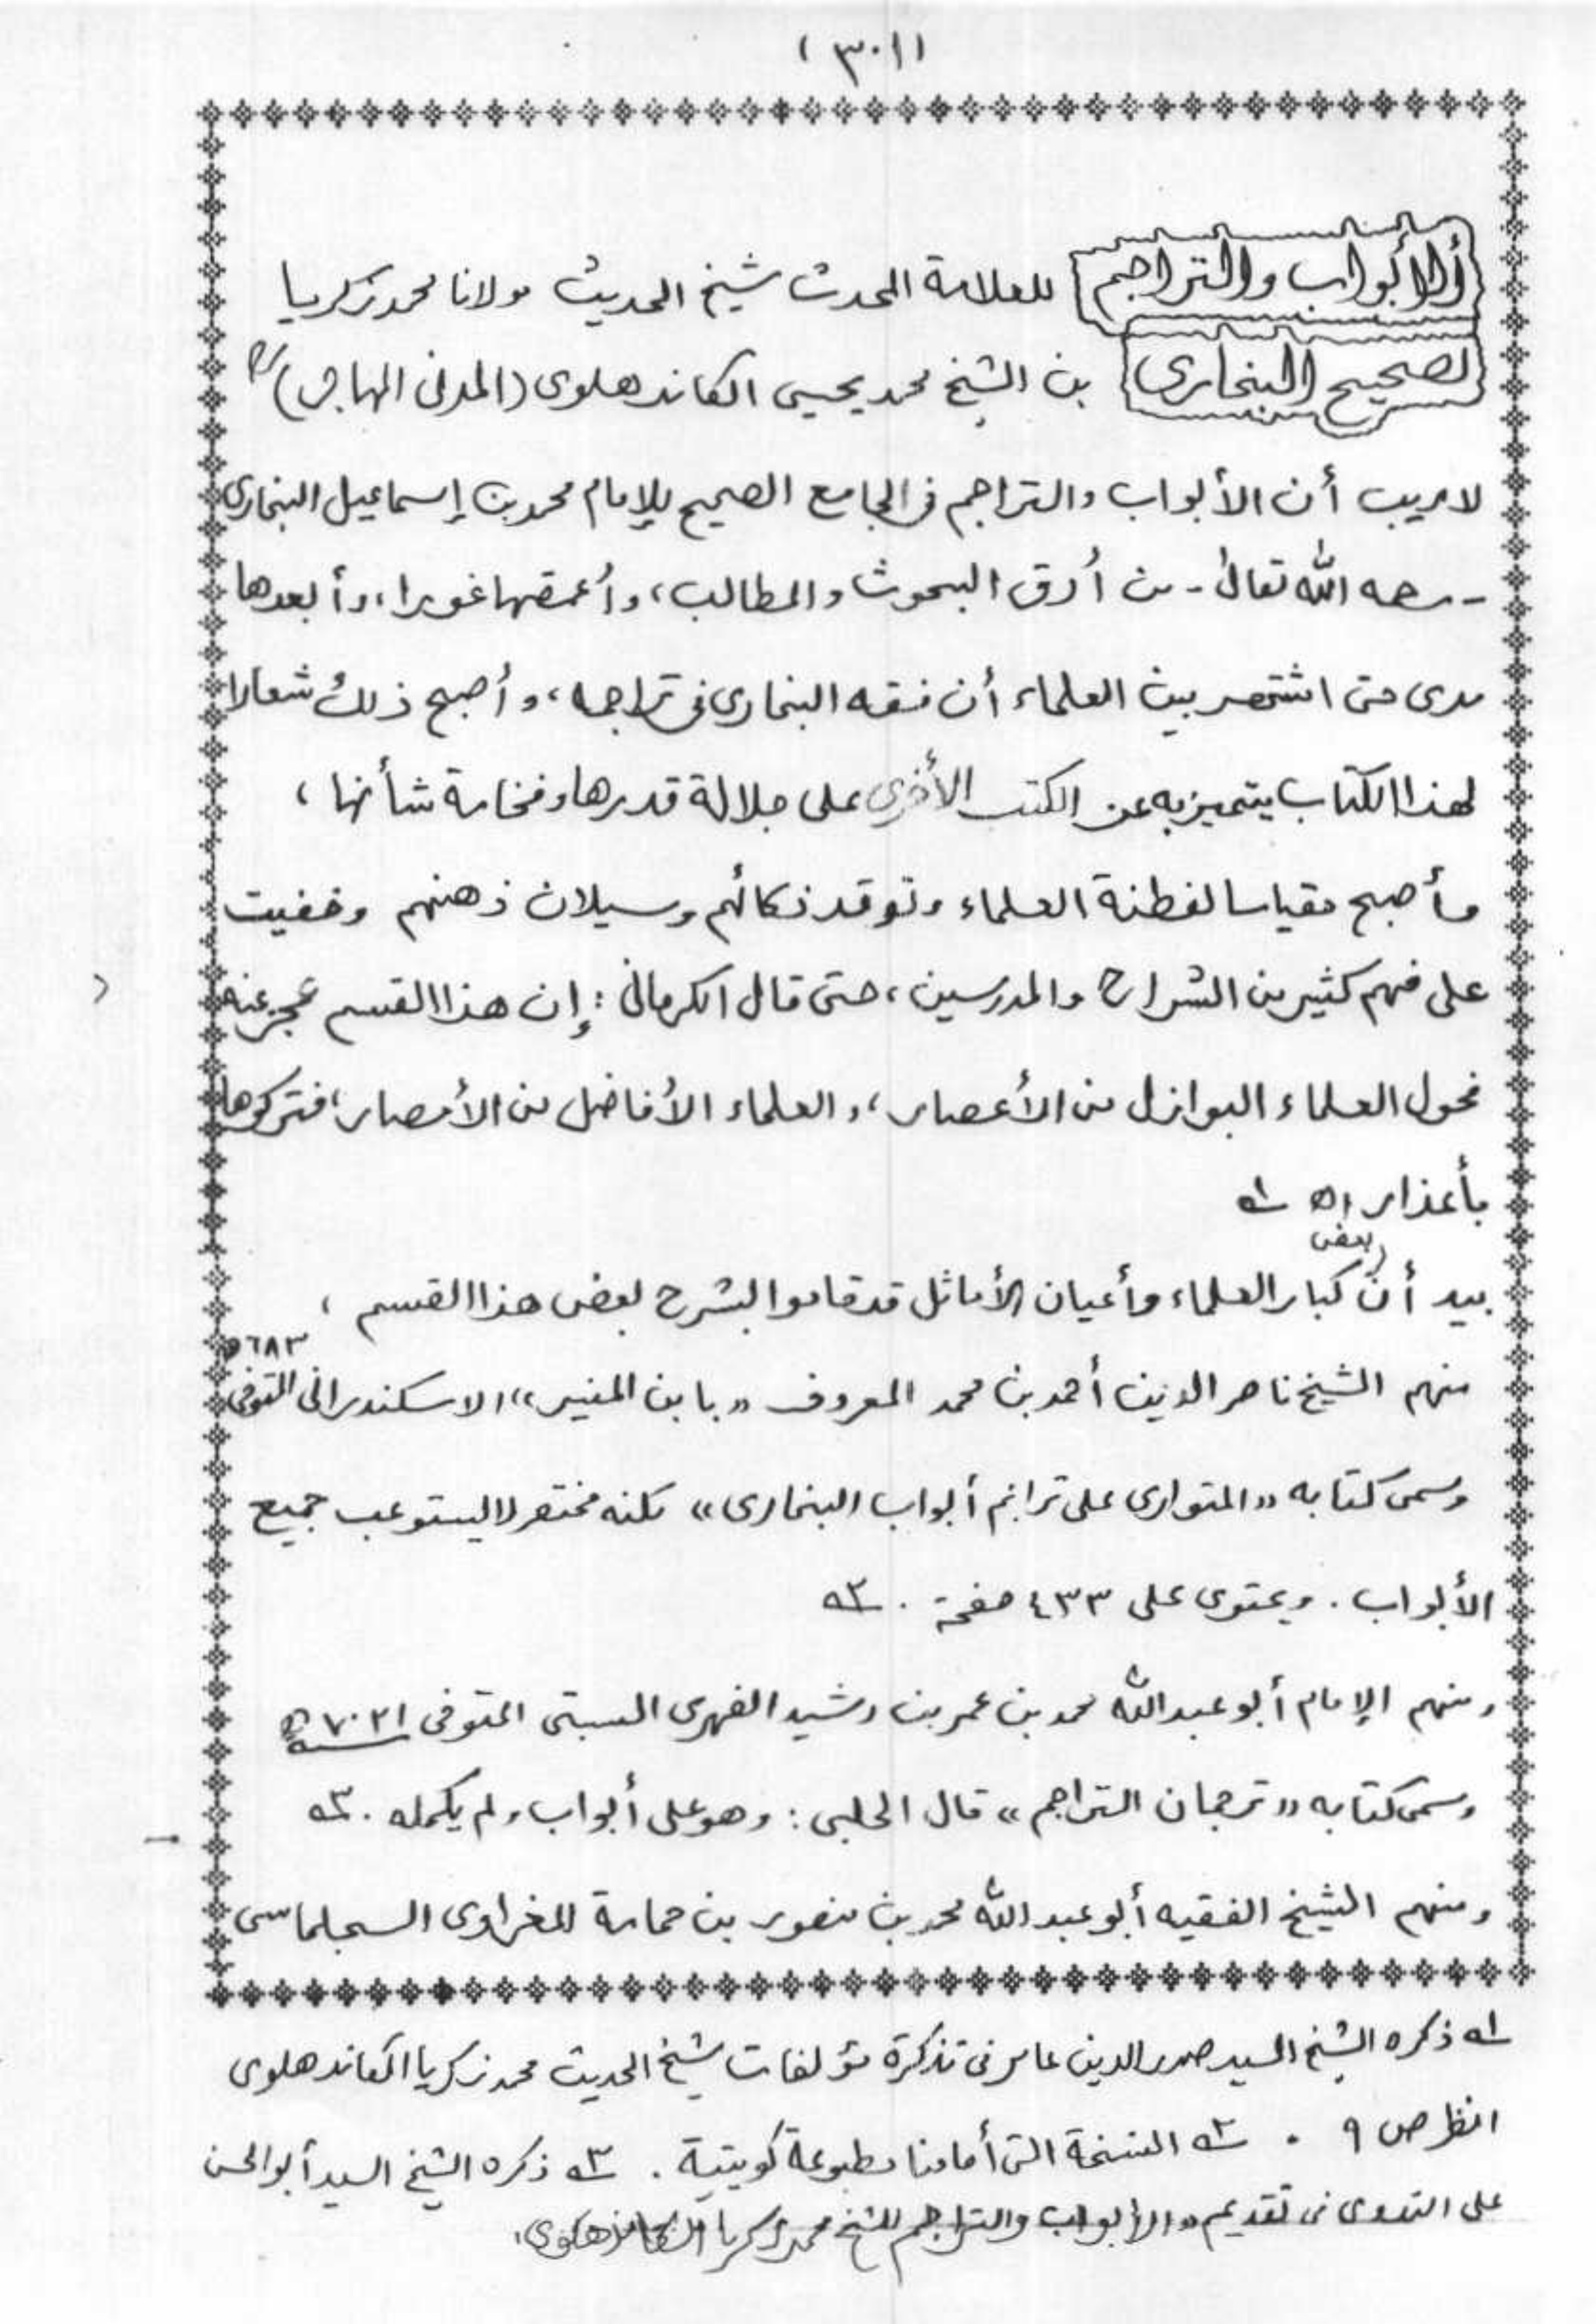 (٣٠١)
الأبواب والتراجم للعلامة المحدث شيخ الحديث مولانا محمد زكريا
لصحيح البخارى بن الشيخ محمد يحيى الكاندهلوى (المدنى المهاجر)
لا ريب أن الأبواب والتراجم فى الجامع الصحيح للإمام محمد بن إسماعيل البخارى
- رحمه الله تعالىٰ - من أدق البحوث والمطالب، وأعمقها غورا، وأبعدها
مدى حتى اشتهر بين العلماء أن فقه البخارى فى تراجمه، وأصبح ذلك شعارا
لهذا الكتاب يتميز به عن الكتب الأخرى على جلالة قدرها وفخامة شأنها،
وأصبح مقياسا لفطنة العلماء وتوقد ذكائهم وسيلان ذهنهم وخفيت
على فهم كثير من الشراح والمدرسين، حتى قال الكرمانى: إن هذا القسم عجز عنه
فحول العلماء البوازل من الأعصار، والعلماء الأفاضل من الأمصار، فتركوها
بأعذار اه ١ه
بيد أن بعض كبار العلماء وأعيان الأماثل قد قاموا بشرح بعض هذا القسم،
منهم الشيخ ناصر الدين أحمد بن محمد المعروف «بابن المنير» الاسكندرانى المتوفى ٦٨٣ه
وسمى كتابه «المتوارى على تراجم أبواب البخارى» لكنه مختصر لا يستوعب جميع
الأبواب. ويحتوى على ٤٣٣ صفحة. ٢ه
ومنهم الإمام أبو عبد الله محمد بن عمر بن رشيد الفهرى السبتى المتوفى ٧٠٢١ه
وسمى كتابه «ترجمان التراجم» قال الحلبى: وهو على أبواب ولم يكمله. ٣ه
ومنهم الشيخ الفقيه أبو عبد الله محمد بن منصور بن حمامة المغراوى السجلماسى
١ه ذكره الشيخ السيد صدر الدين عامر فى تذكرة مؤلفات شيخ الحديث محمد زكريا الكاندهلوى
انظر ص ٩. ٢ه النسخة التى أمامنا مطبوعة كويتية. ٣ه ذكره الشيخ السيد أبو الحسن
على الندوى فى تقديم «الأبواب والتراجم للشيخ محمد زكريا الكاندهلوى.